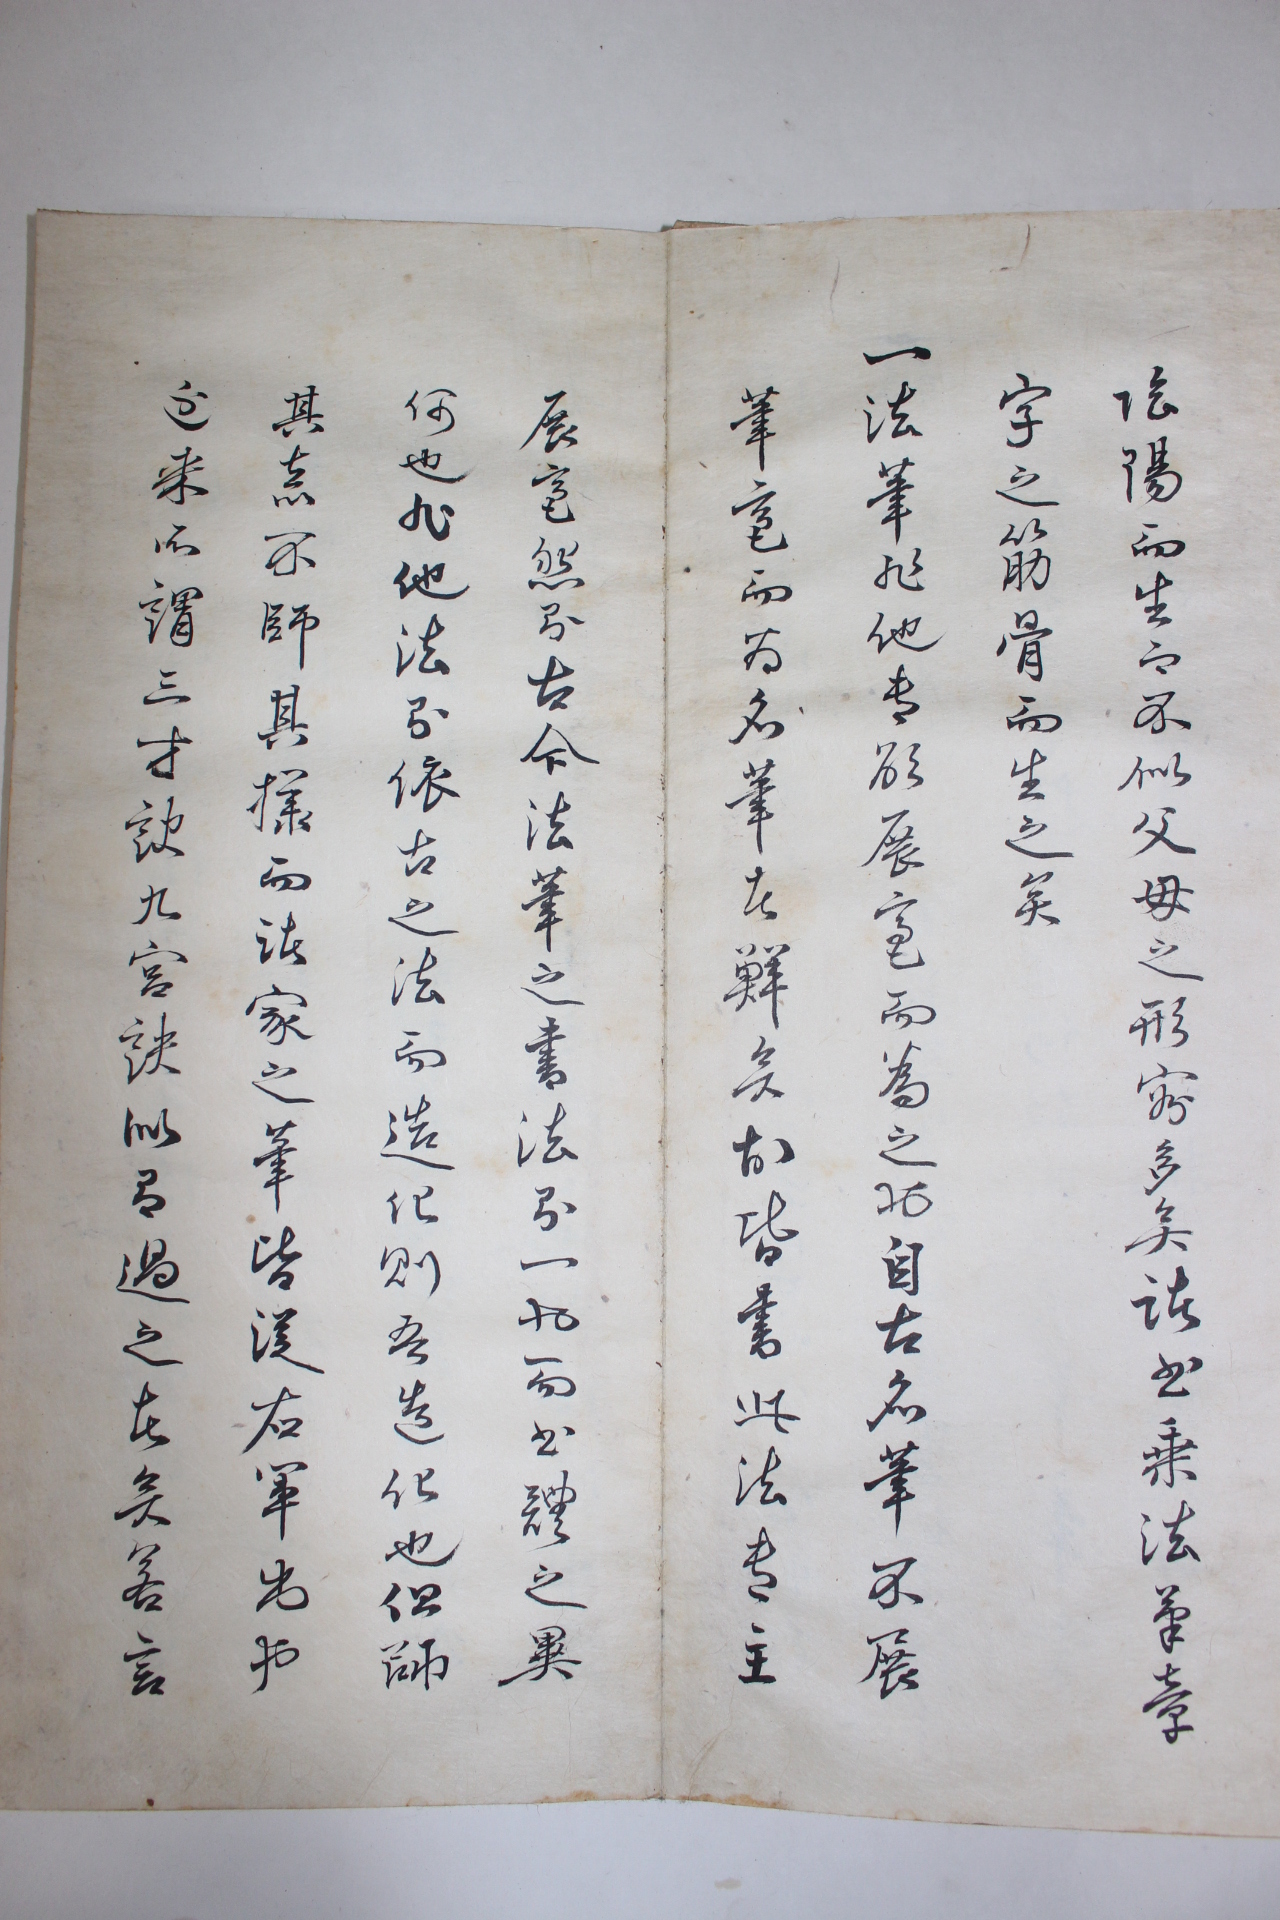 陰陽而生而不似父母之形容多矣諸書乘法筆章
字之筋骨而生之矣
一法筆非他專欲展毫而為之也自古名筆不展
筆毫而為名筆者鮮矣故皆書此法專主
展毫然則古今法筆之書法則一也而書體之異
何也非他法則依古之法而造化則吾造化也但師
其意不師其樣而諸家之筆皆從右軍出也
近來所謂三才訣九宮訣似有過之者矣若言